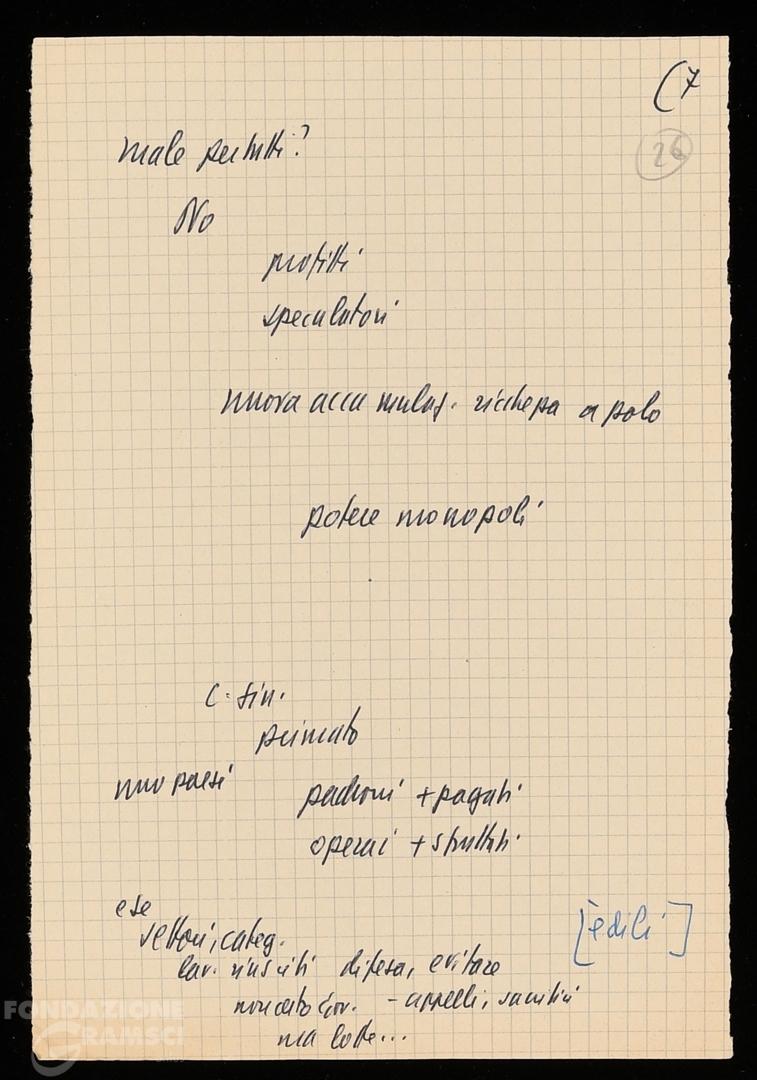 (7
26
male per tutti?
No
profitti
speculatori
nuova accumulaz. ricchezza a polo
potere monopoli
C. sin.
primato
padroni + pagati
operai + sfruttati
ese
settori, categ.
[edili]
lav. riusciti difesa, evitare
non certo Gov. - appelli, sacrifici
ma lotte...
FONDAZIONE
GRAMSCI